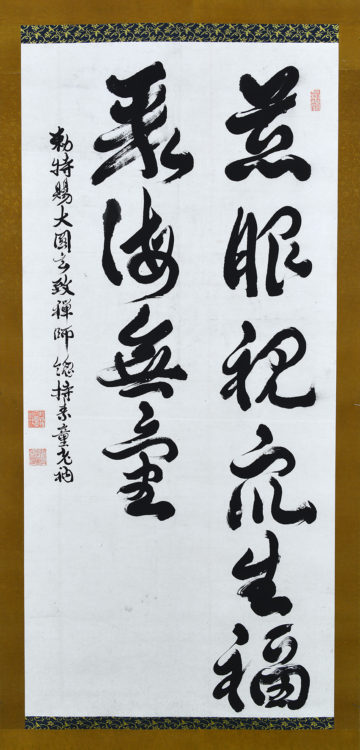 慈眼視衆生福
聚海無量
勅特賜大圓玄致禅師總持素童老衲